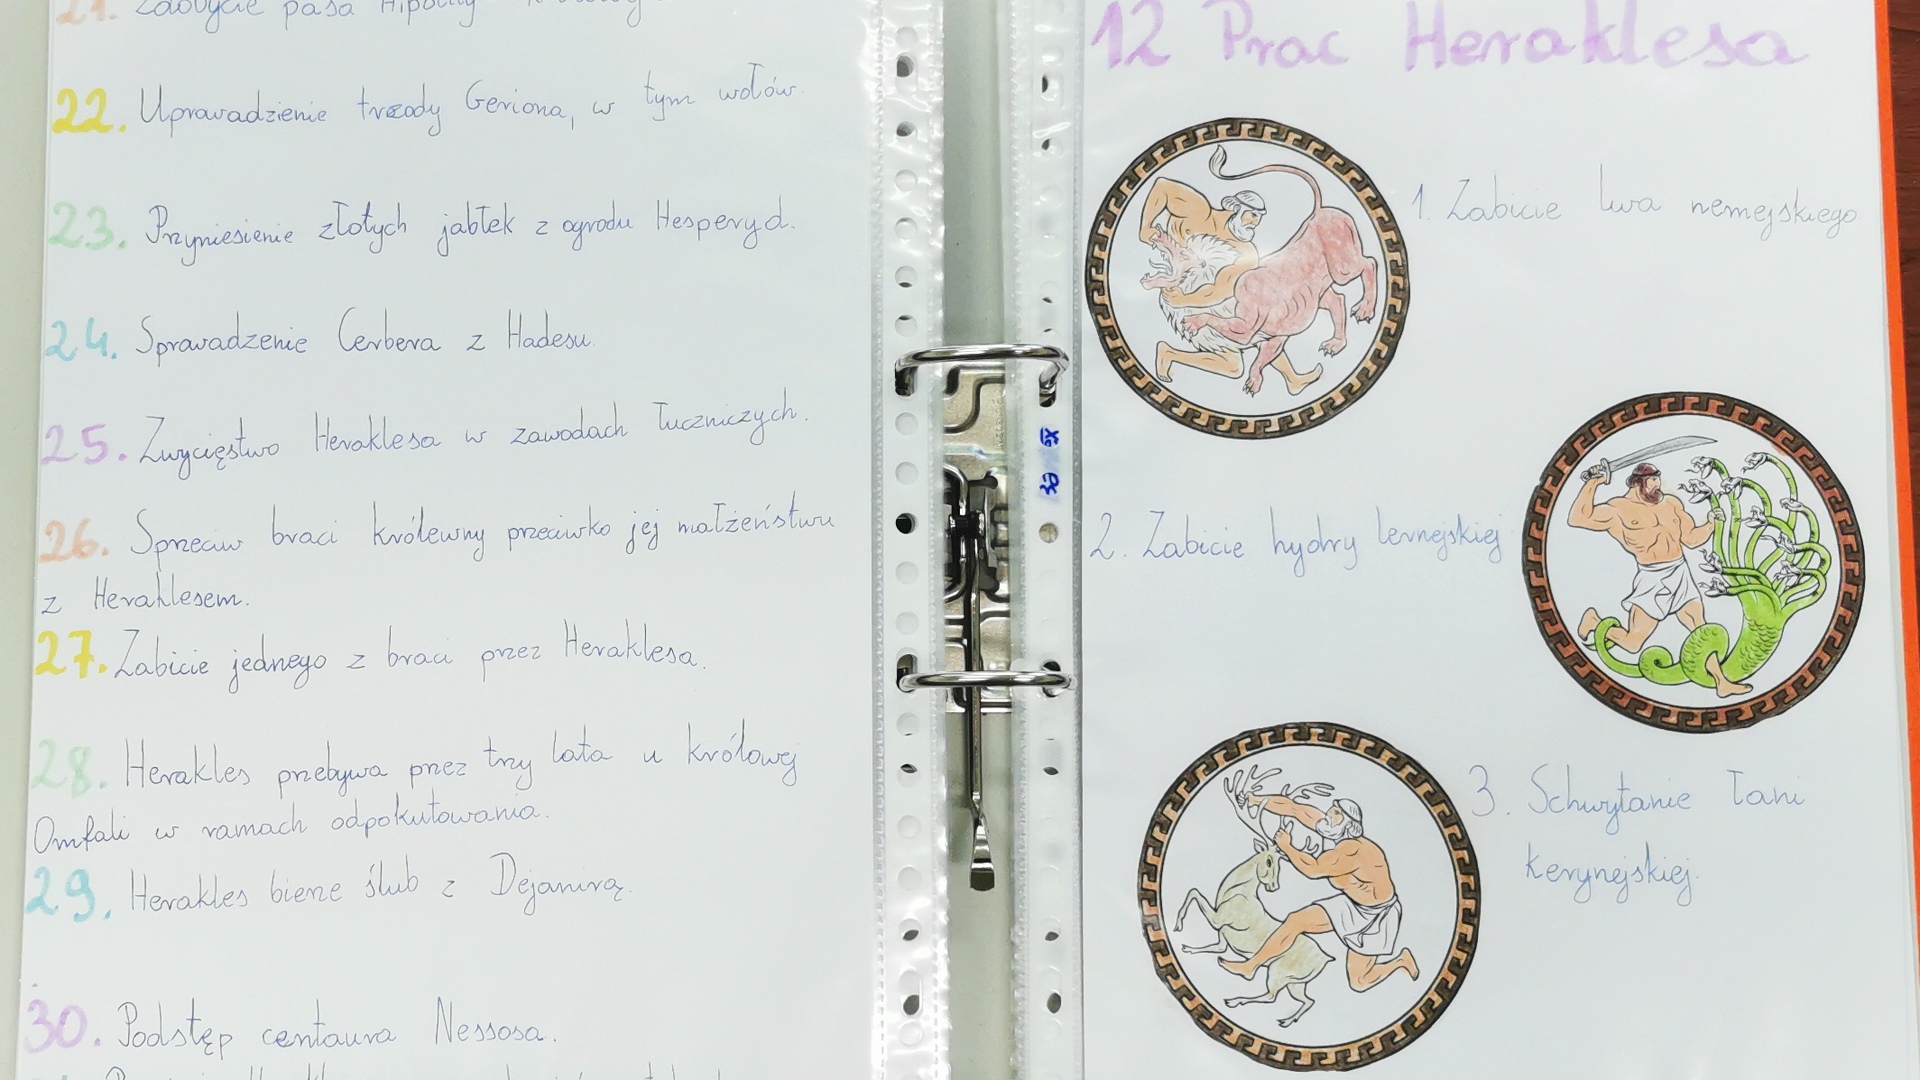 21. Zdobycie pasa Hipolity
22. Uprowadzienie trzody Geriona, w tym wołów.
23. Przyniesienie złotych jabłek z ogrodu Hesperyd.
24. Sprowadzenie Cerbera z Hadesu.
25. Zwycięstwo Heraklesa w zawodach łuczniczych.
26. Sprzeciw braci królewny przeciwko jej małżeństwu
z Heraklesem.
27. Zabicie jednego z braci przez Heraklesa.
28. Herakles przebywa przez trzy lata u królowej
Omfali w ramach odpokutowania.
29. Herakles bierze ślub z Dejanirą.
30. Podstęp centaura Nessosa.
12 Prac Heraklesa
1. Zabicie lwa nemejskiego
2. Zabicie hydry lernejskiej
3. Schwytanie łani
kerynejskiej.